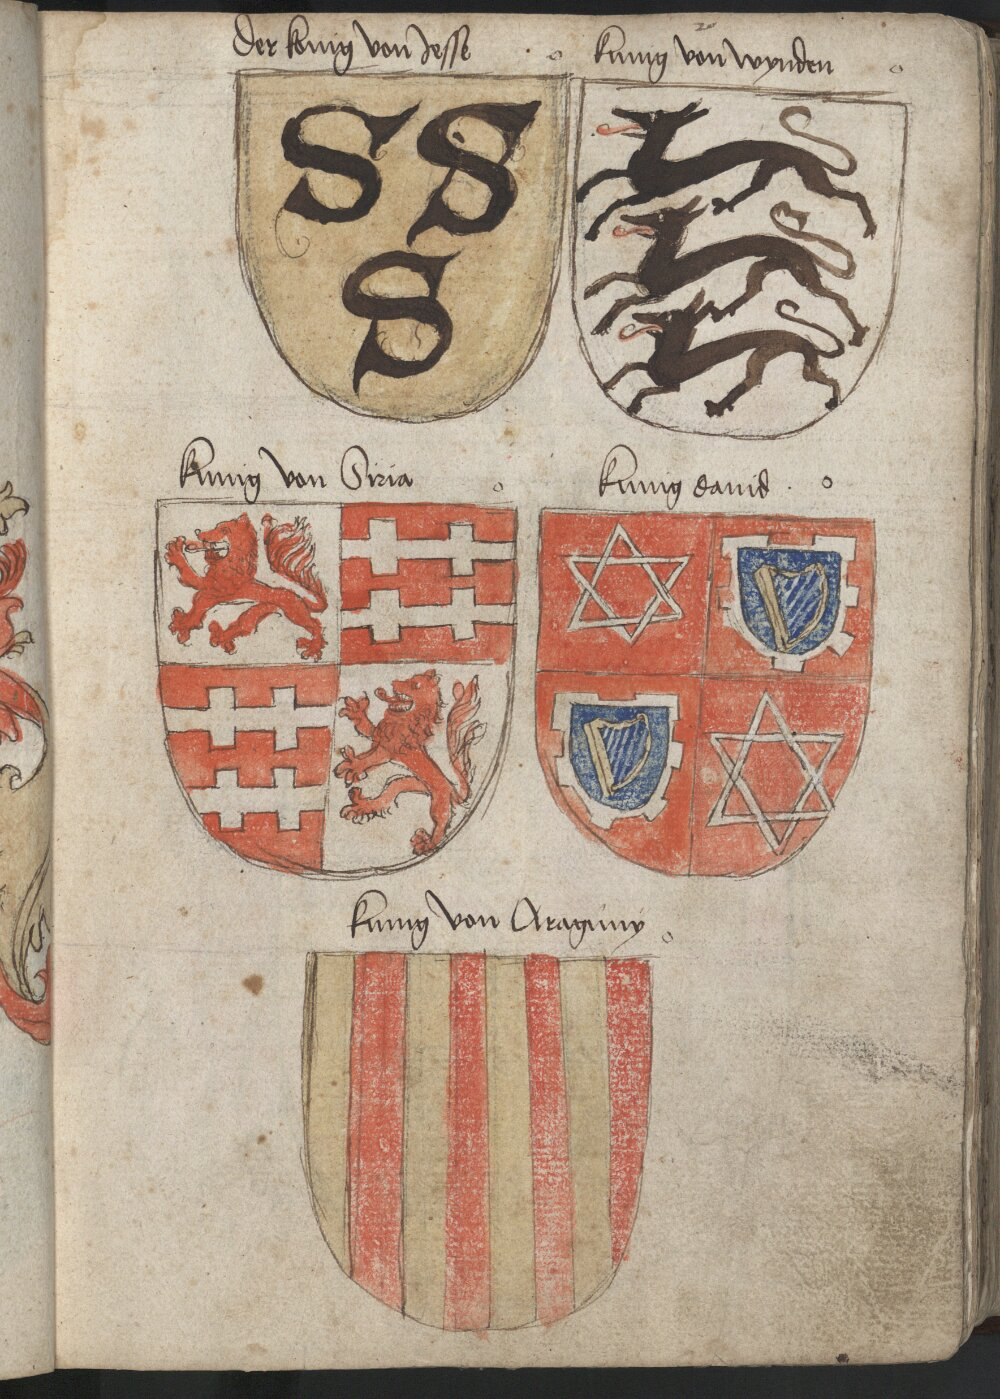 der konig von Jesse
kunig von wynden
S S
S
kunig von Siria
kunig david
kunig von Araguny